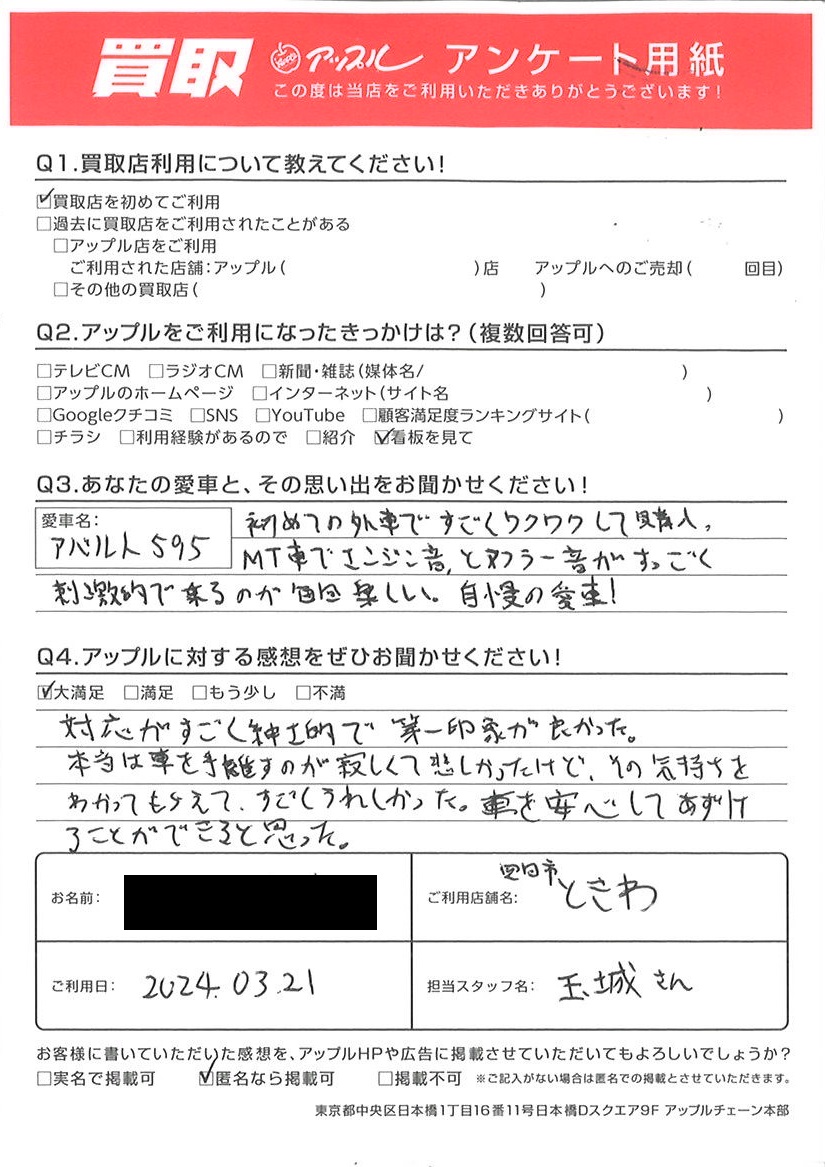 買取 アップル アンケート用紙
この度は当店をご利用いただきありがとうございます!
Q1.買取店利用について教えてください!
☑買取店を初めてご利用
□過去に買取店をご利用されたことがある
□アップル店をご利用
ご利用された店舗:アップル( )店 アップルへのご売却( 回目)
□その他の買取店( )
Q2.アップルをご利用になったきっかけは?(複数回答可)
□テレビCM □ラジオCM □新聞・雑誌(媒体名/ )
□アップルのホームページ □インターネット(サイト名 )
□Googleクチコミ □SNS □YouTube □顧客満足度ランキングサイト( )
□チラシ □利用経験があるので □紹介 ☑看板を見て
Q3.あなたの愛車と、その思い出をお聞かせください!
愛車名:
アバルト595
初めての外車ですごくワクワクして購入。
MT車でエンジン音、とマフラー音がすっごく
刺激的で乗るのが毎日楽しい。自慢の愛車!
Q4.アップルに対する感想をぜひお聞かせください!
☑大満足 □満足 □もう少し □不満
対応がすごく紳士的で第一印象が良かった。
本当は車を手離すのが寂しくて悲しかったけど、その気持ちを
わかってもらえて、すごくうれしかった。車を安心してあずけ
ることができると思った。
お名前:
ご利用店舗名: 四日市ときわ
ご利用日: 2024.03.21
担当スタッフ名: 玉城さん
お客様に書いていただいた感想を、アップルHPや広告に掲載させていただいてもよろしいでしょうか?
□実名で掲載可 ☑匿名なら掲載可 □掲載不可 ※ご記入がない場合は匿名での掲載とさせていただきます。
東京都中央区日本橋1丁目16番11号日本橋Dスクエア9F アップルチェーン本部